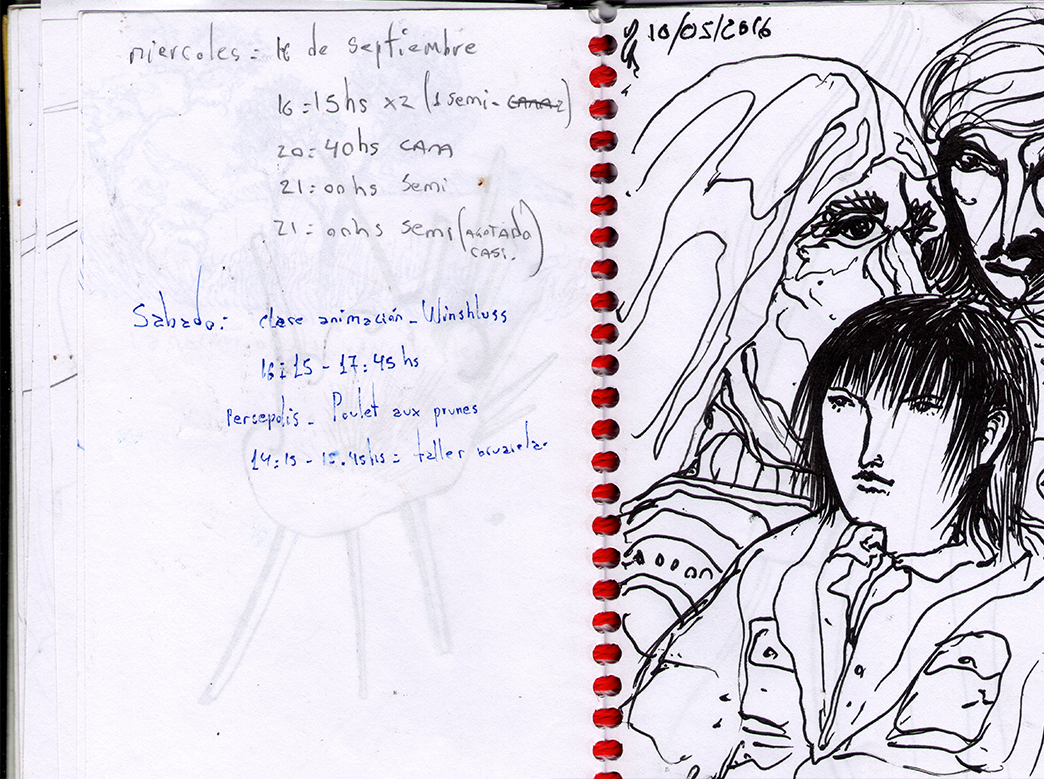 miercoles = 16 de septiembre
16:15hs x2 (1 semi -
20:40hs CAMA
21:00hs Semi
21:00hs Semi (AGOTADO
CASI.)
Sabado: clase animación - Winshluss
16:15 - 17:45 hs
Persepolis - Poulet aux prunes
14:15 - 15.45hs = taller
10/05/2016